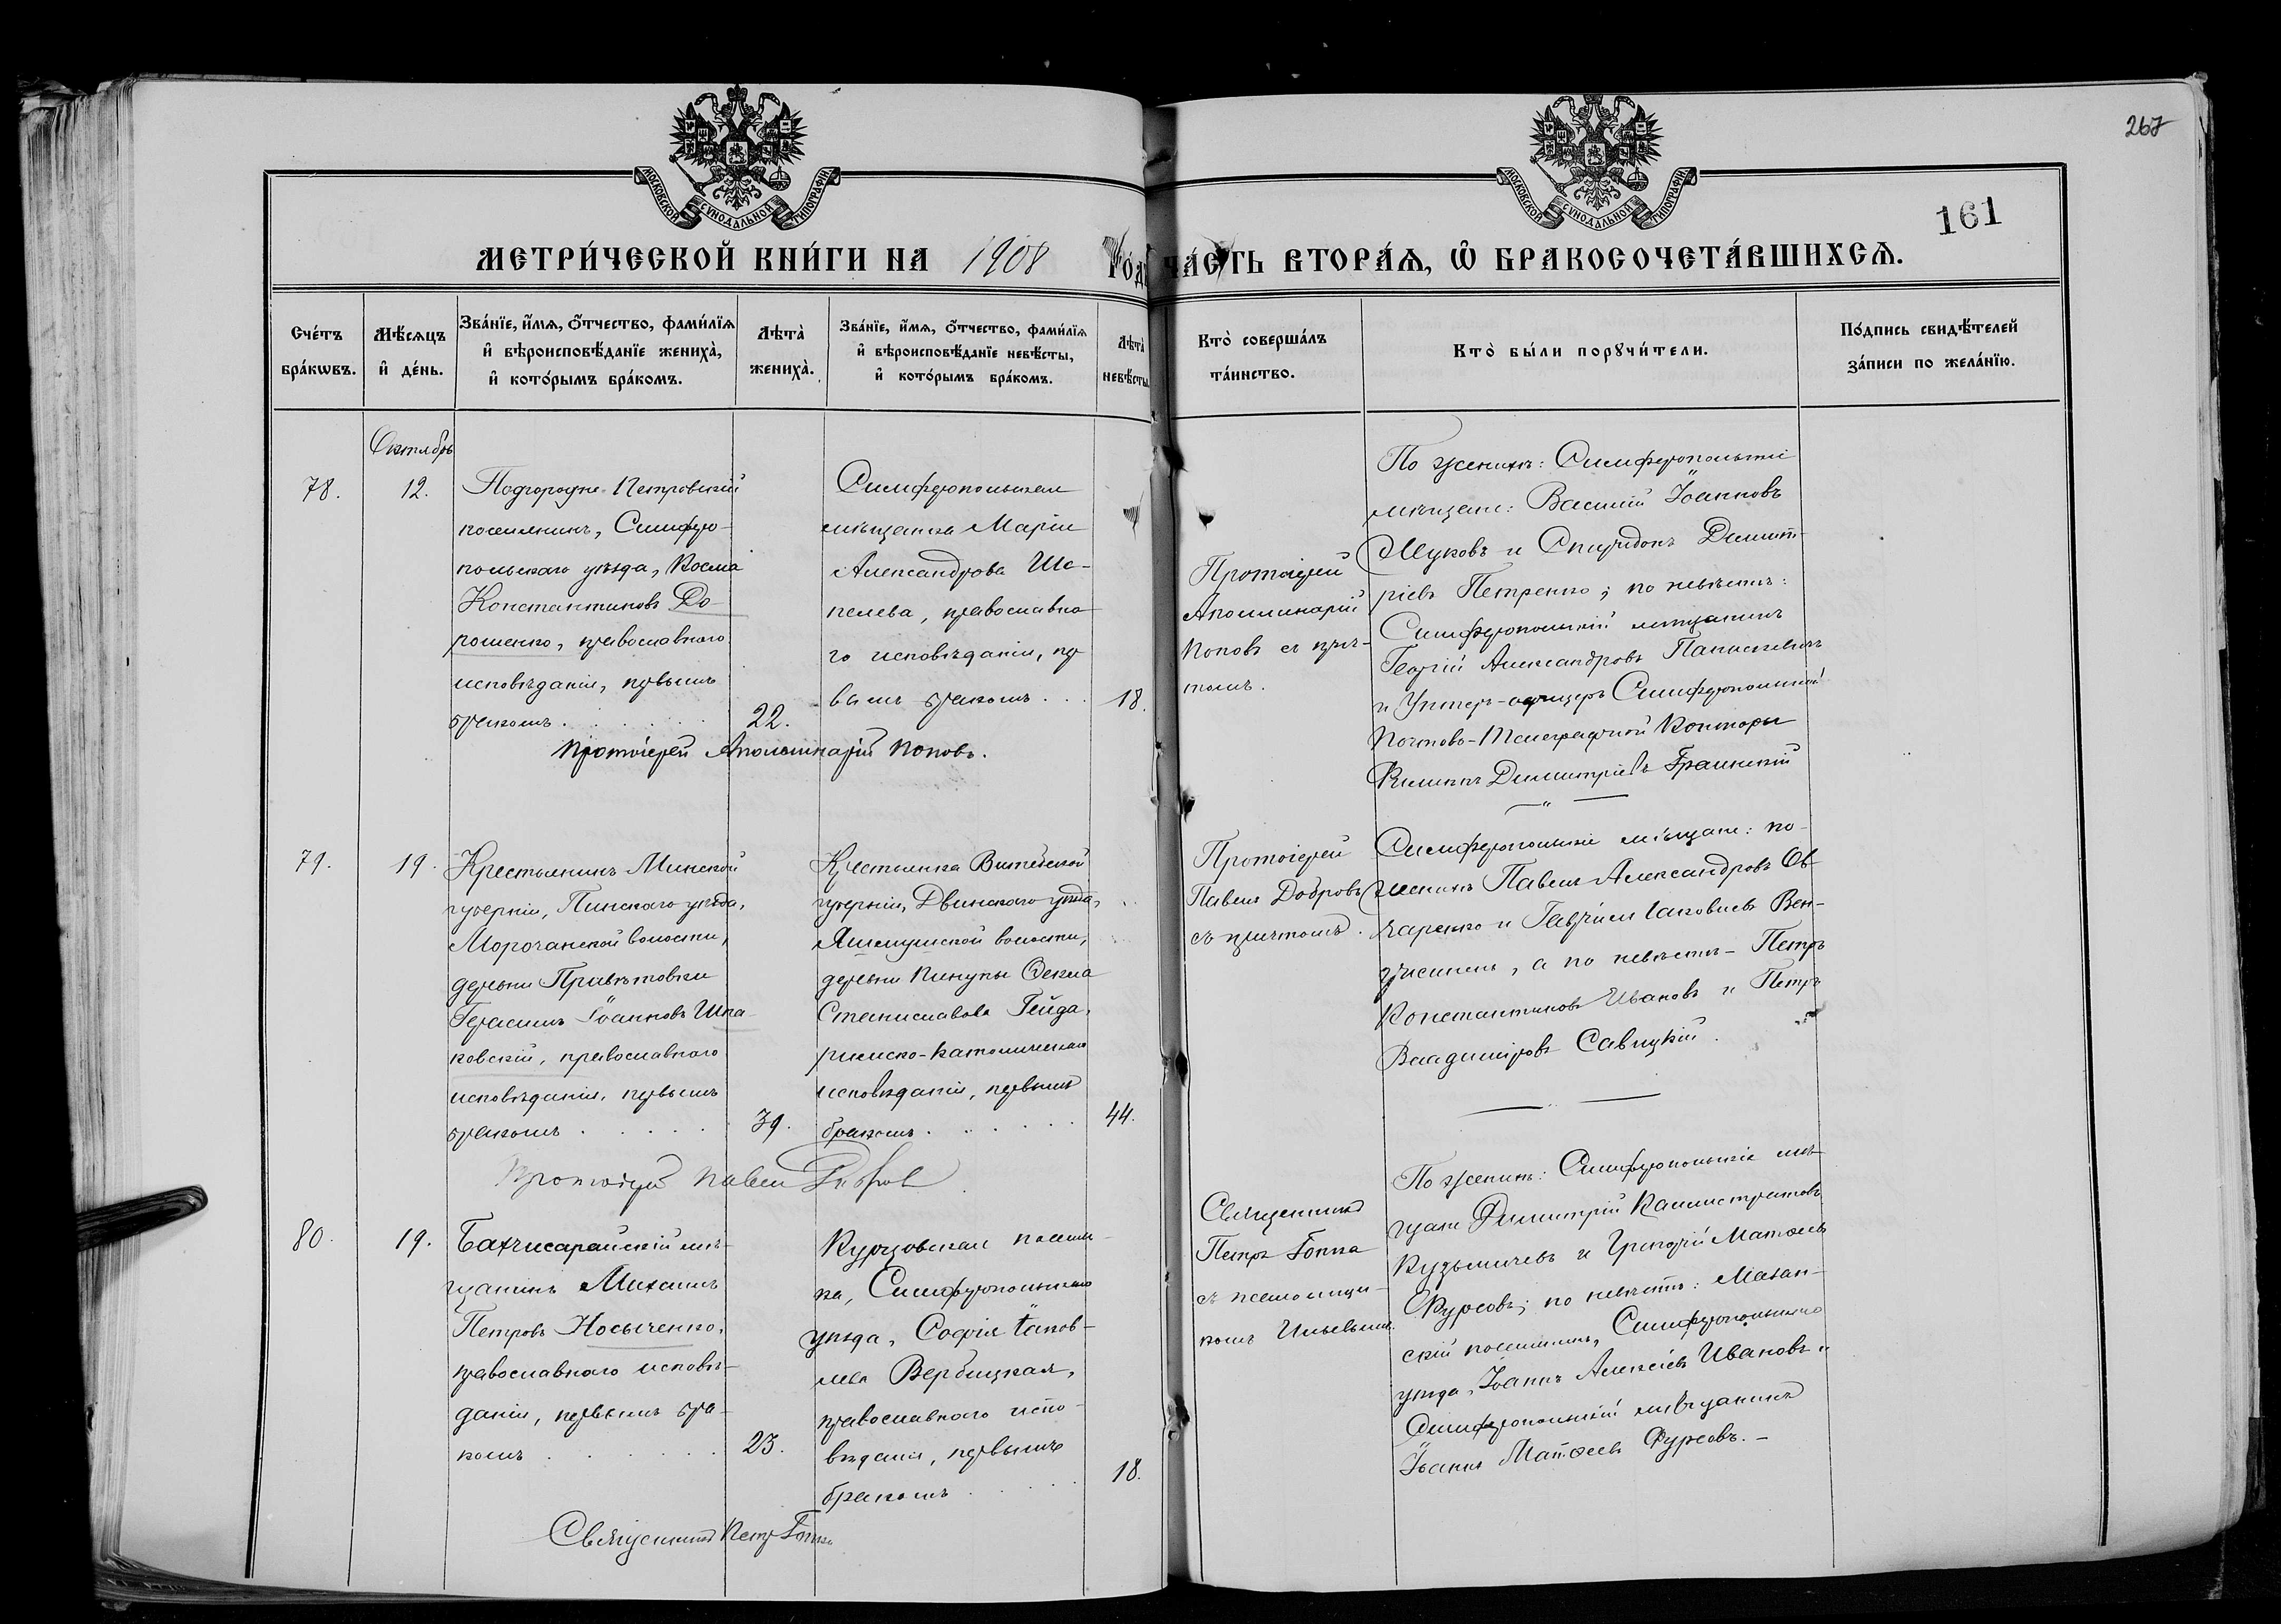 267
161
МОСКОВСКОЙ СѴНОДАЛЬНОЙ ТИПОГРАФІИ
МОСКОВСКОЙ СѴНОДАЛЬНОЙ ТИПОГРАФІИ
МЕТРИ́ЧЕСКОЙ КНИ́ГИ НА 1908 ГО́ДЪ
ЧА́СТЬ ВТОРА́Ѧ, Ѡ҆ БРАКОСОЧЕТА́ВШИХСѦ.
Сче́тъ
бра́кѡвъ.
Мѣ́сѧцъ
и҆ де́нь.
Зва́нїе, и҆́мѧ, ѻ҆́тчество, фами́лїѧ
и҆ вѣроисповѣ́данїе жениха̀,
и҆ кото́рымъ бра́комъ.
Лѣта̀
жениха̀.
Зва́нїе, и҆́мѧ, ѻ҆́тчество, фами́лїѧ
и҆ вѣроисповѣ́данїе невѣ́сты,
и҆ кото́рымъ бра́комъ.
Лѣта̀
невѣ́сты.
Кто̀ соверша́лъ
та́инство.
Кто̀ бы́ли порꙋчи́тели.
По́дпись свидѣ́телей
за́писи по жела́нїю.
Октябрь
78.
12.
Подгородне-Петровскій
поселянинъ, Симферо-
польскаго уѣзда, Косма
Константиновъ До-
рошенко, православнаго
исповѣданія, первымъ
бракомъ.
22.
Симферопольская
мѣщанка Марія
Александрова Ше-
пелева, православна
го исповѣданія, пер
вымъ бракомъ
18.
Протоіерей Аполлинарій Поповъ.
Протоіерей
Аполлинарій
Поповъ съ прич-
томъ.
По женихѣ: Симферопольскіе
мѣщане: Василій Іоанновъ
Жуковъ и Спиридонъ Димит-
ріевъ Петренко; по невѣстѣ:
Симферопольскій мѣщанинъ
Георгій Александровъ
и Унтеръ-офицеръ Симферопольской
Почтово-Телеграфной Конторы
Димитріевъ
79.
19.
Крестьянинъ Минской
губерніи, Пинскаго уѣзда,
Морочанской волости,
деревни Привѣтовки
Герасимъ Іоанновъ Шпа-
ковскій, православнаго
исповѣданія, первымъ
бракомъ
39.
Крестьянка Витебской
губерніи, Двинскаго уѣзда,
волости,
деревни Пинупы Ѳекла
Станиславова Гейда,
римско-католическаго
исповѣданія, первымъ
бракомъ
44.
Протоіерей Павелъ Добровъ
Протоіерей
Павелъ Добровъ
съ причтомъ.
Симферопольскіе мѣщане: по
женихѣ Павелъ Александровъ Ов-
чаренко и Гавріилъ Іаковлевъ Вен-
а по невѣстѣ - Петръ
Константиновъ Ивановъ и Петръ
Владиміровъ Савицкій.
80.
19.
Бахчисарайскій мѣ-
щанинъ Михаилъ
Петровъ Носыченко,
православнаго исповѣ-
данія, первымъ бра-
комъ
23.
Курцовская поселян
ка, Симферопольскаго
уѣзда, Софія Іаков-
лева Вербицкая,
православнаго испо-
вѣданія, первымъ
бракомъ
18.
Священникъ Петръ Гопка
Священникъ
Петръ Гопка
съ псаломщи-
комъ Ильевымъ.
По женихѣ: Симферопольскіе мѣ-
щане Димитрій Каллистратовъ
Кузьмичевъ и Григорій Матѳеевъ
Фурсовъ; по невѣстѣ: Мазан-
скій поселянинъ, Симферопольскаго
уѣзда, Іоаннъ Алексѣевъ Ивановъ и
Симферопольскій мѣщанинъ
Іоаннъ Матѳеевъ Фурсовъ. -